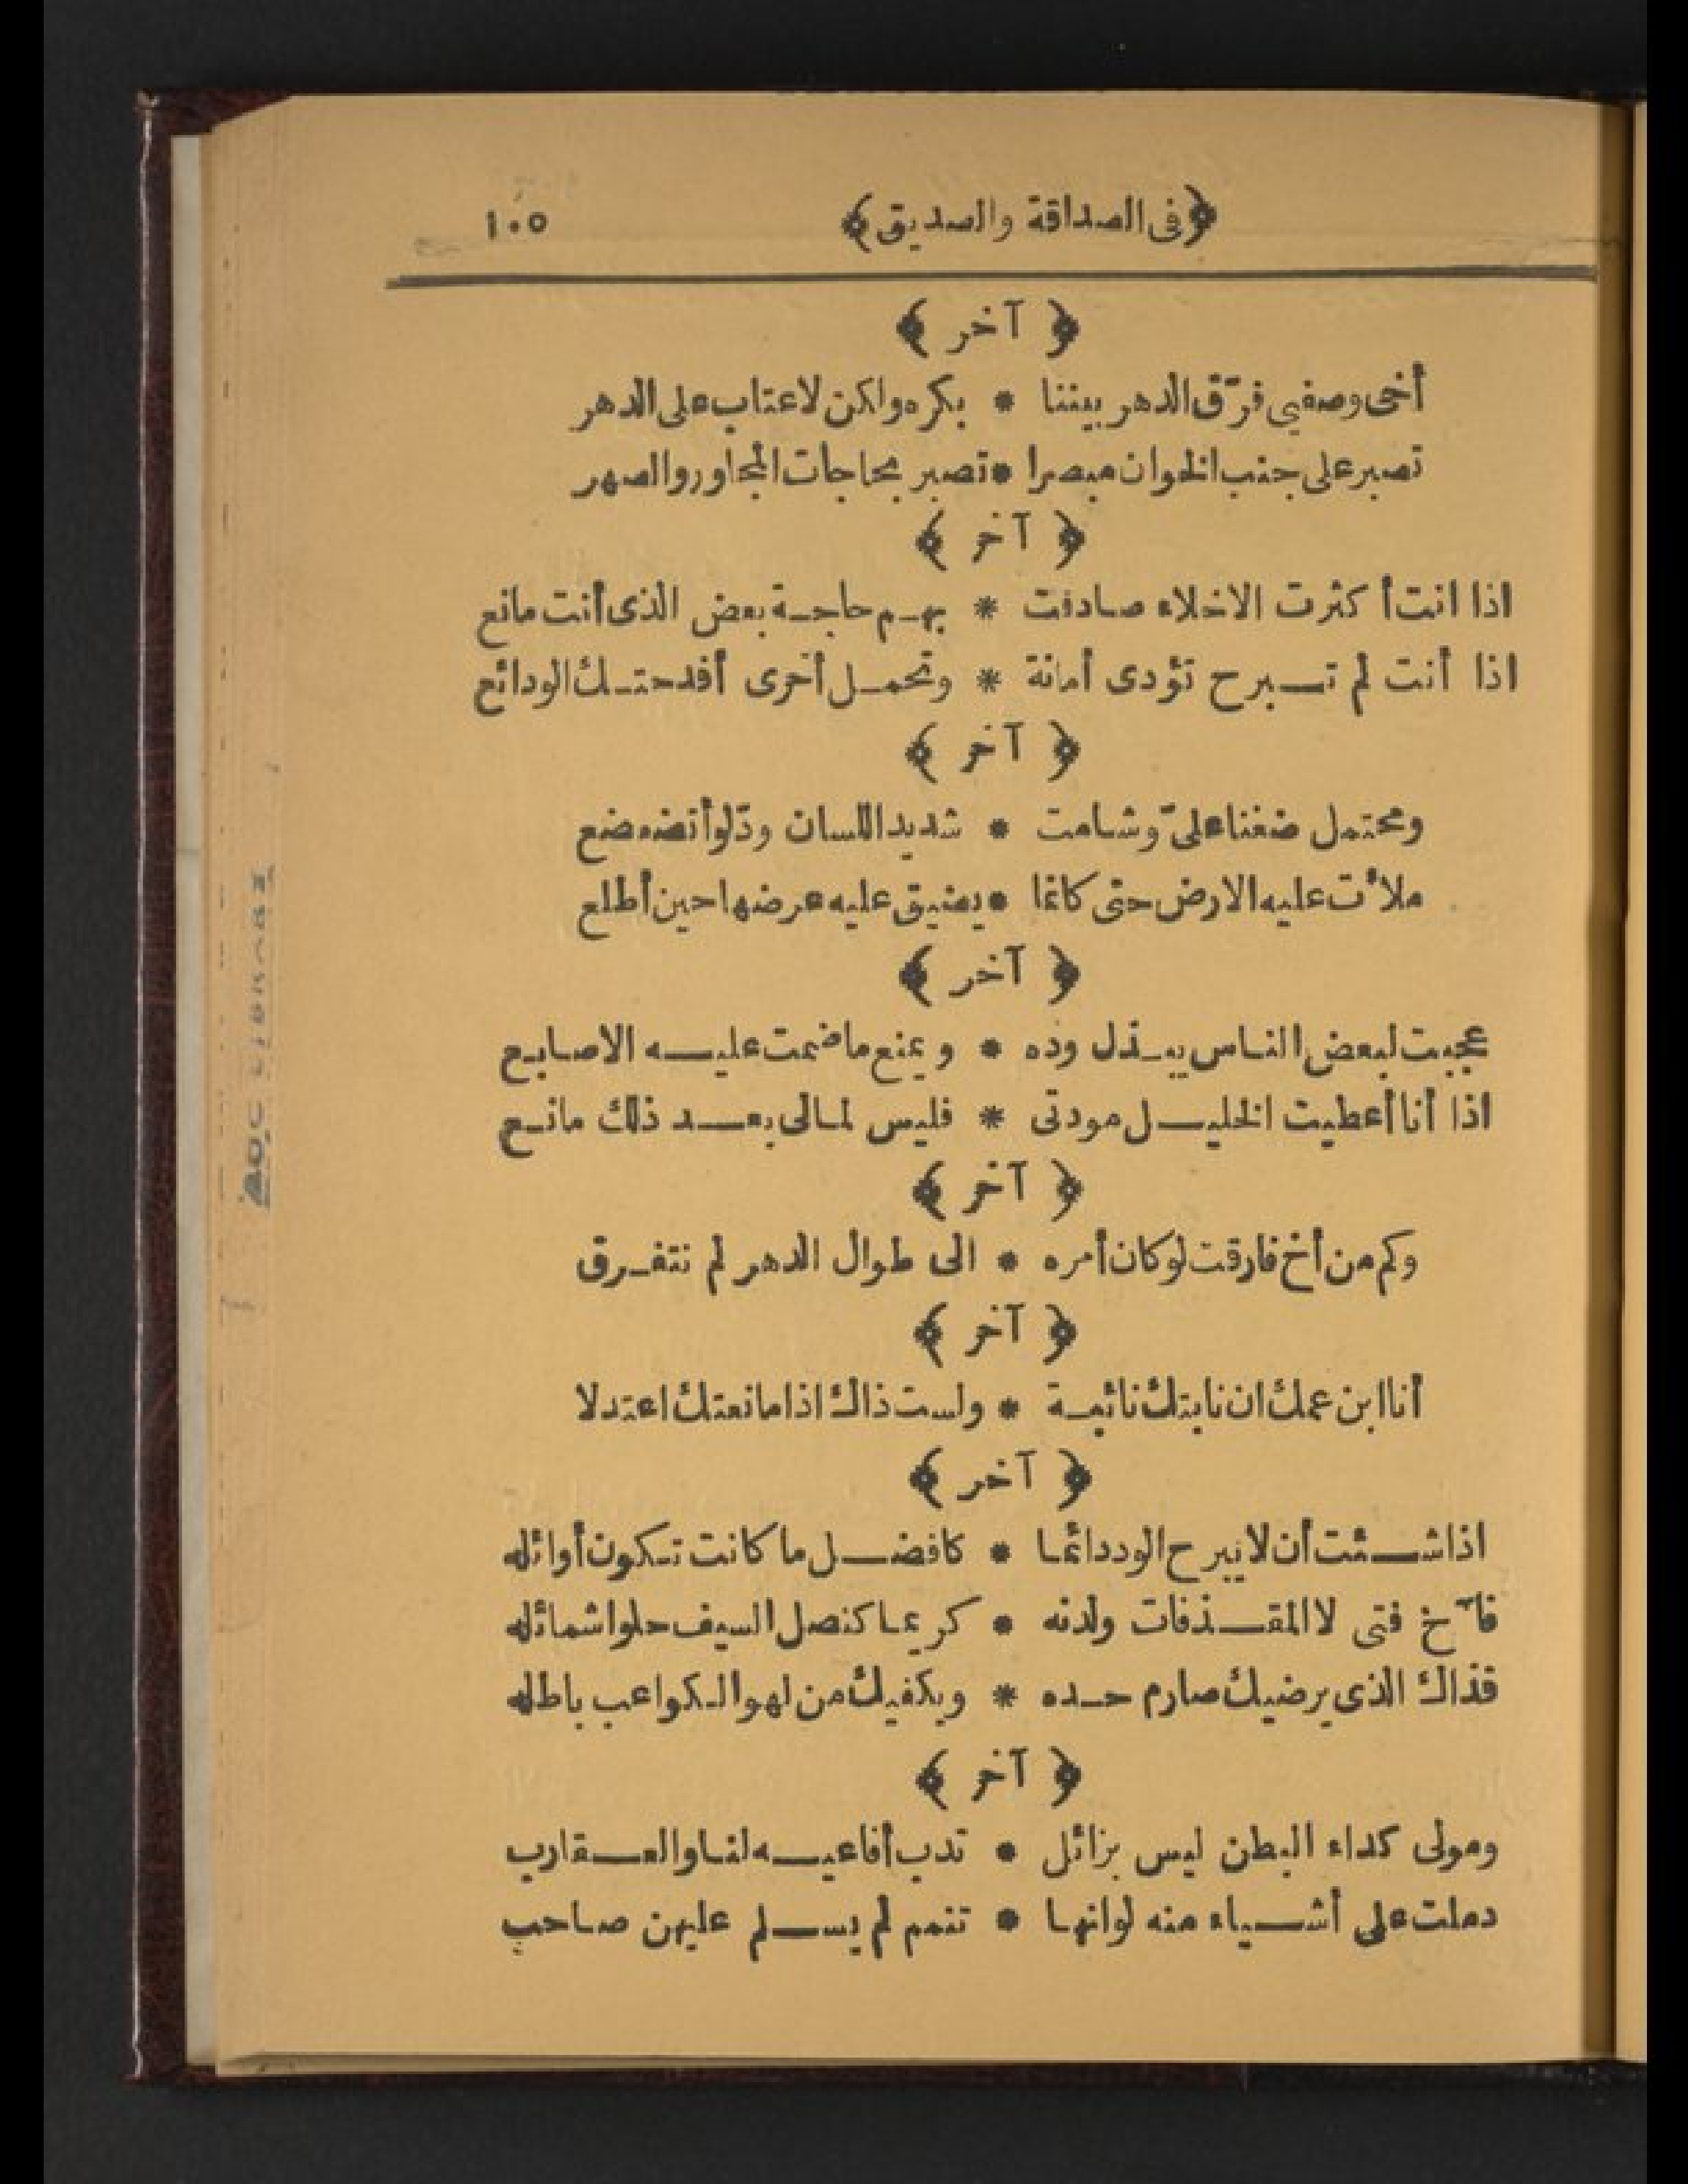 ﴿فى الصداقة والصديق﴾ ١٠٥
﴿ آخر ﴾
أخى وصفيى فرّق الدهر بيننا * بكره ولكن لا عتاب على الدهر
تصبر على جنب الخوان مبصرا * تصبر بحاجات المجاور والصهر
﴿ آخر ﴾
اذا انت أكثرت الاخلاء صادفت * بهم حاجة بعض الذى أنت مانع
اذا أنت لم تبرح تؤدى أمانة * وتحمل أخرى أفدحتك الودائع
﴿ آخر ﴾
ومحتمل ضغنا علىّ وشامت * شديد اللسان ودّ لو أتضعضع
ملأت عليه الارض حتى كانما * يضيق عليه عرضها حين أطلع
﴿ آخر ﴾
عجبت لبعض الناس يبذل وده * ويمنع ما ضمت عليه الاصابع
اذا أنا أعطيت الخليل مودتى * فليس لمالى بعد ذلك مانع
﴿ آخر ﴾
وكم من أخ فارقت لو كان أمره * الى طوال الدهر لم نتفرق
﴿ آخر ﴾
أنا ابن عمك ان نابتك نائبة * ولست ذاك اذا ما نعتك اعتدلا
﴿ آخر ﴾
اذا شئت أن لا يبرح الود دائما * كافضل ما كانت تكون أوائله
فآخ فتى لا المقذفات ولدنه * كريما كنصل السيف حلوا شمائله
فذاك الذى يرضيك صارم حده * ويكفيك من لهو الكواعب باطله
﴿ آخر ﴾
ومولى كداء البطن ليس بزائل * تدب أفاعيه لنا والعقارب
دملت على أشياء منه لو انها * تنمم لم يسلم عليهن صاحب